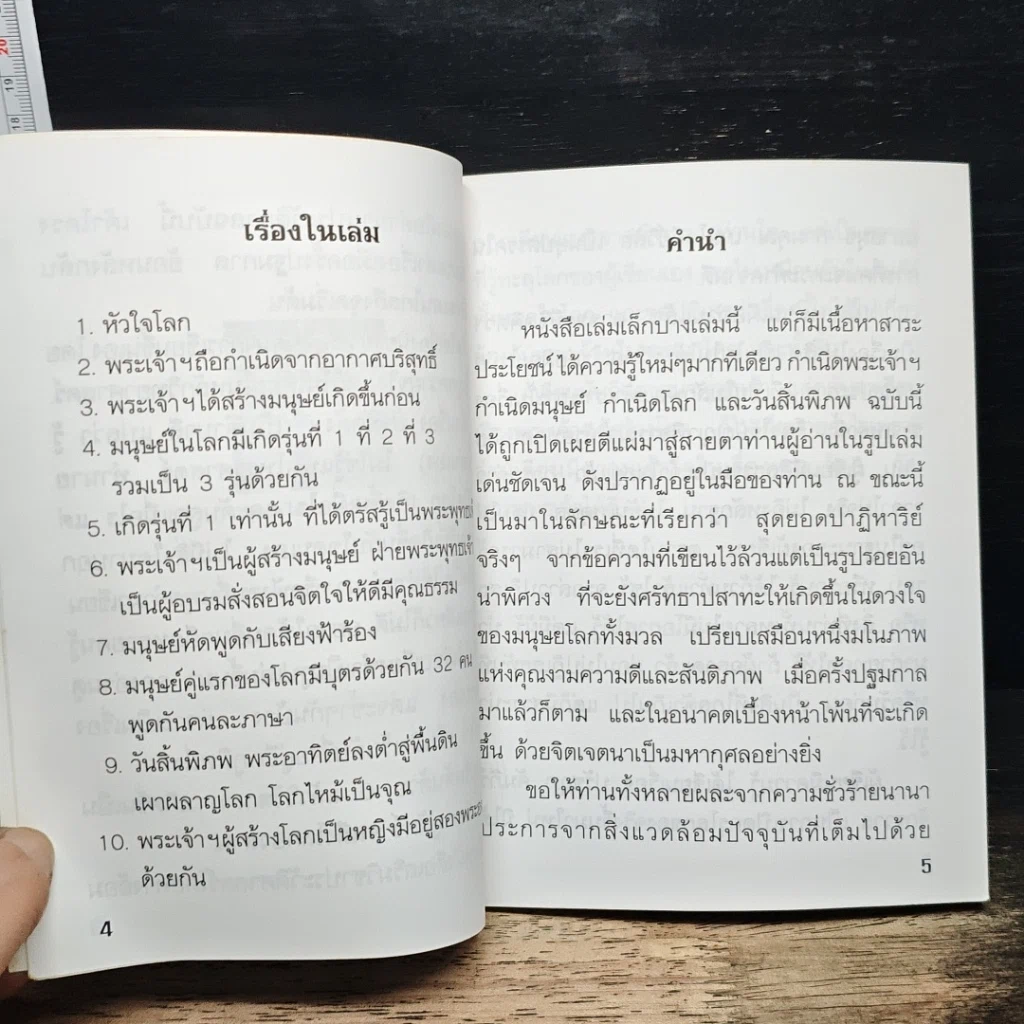 20
19
18
เรื่องในเล่ม
1. หัวใจโลก
2. พระเจ้าฯถือกำเนิดจากอากาศบริสุทธิ์
3. พระเจ้าฯได้สร้างมนุษย์เกิดขึ้นก่อน
4. มนุษย์ในโลกมีเกิดรุ่นที่ 1 ที่ 2 ที่ 3
รวมเป็น 3 รุ่นด้วยกัน
5. เกิดรุ่นที่ 1 เท่านั้น ที่ได้ตรัสรู้เป็น
6. พระเจ้าฯเป็นผู้สร้างมนุษย์ ฝ่ายพระพุทธเจ้า
เป็นผู้อบรมสั่งสอนจิตใจให้ดีมีคุณธรรม
7. มนุษย์หัดพูดกับเสียงฟ้าร้อง
8. มนุษย์คู่แรกของโลกมีบุตรด้วยกัน 32 คน
พูดกันคนละภาษา
9. วันสิ้นพิภพ พระอาทิตย์ลงต่ำสู่พื้นดิน
เผาผลาญโลก โลกไหม้เป็นจุณ
10. พระเจ้าฯผู้สร้างโลกเป็นหญิงมีอยู่สอง
ด้วยกัน
4
คำนำ
หนังสือเล่มเล็กบางเล่มนี้ แต่ก็มีเนื้อหาสาระ
ประโยชน์ ได้ความรู้ใหม่ๆมากทีเดียว กำเนิดพระเจ้าฯ
กำเนิดมนุษย์ กำเนิดโลก และวันสิ้นพิภพ ฉบับนี้
ได้ถูกเปิดเผยตีแผ่มาสู่สายตาท่านผู้อ่านในรูปเล่ม
เด่นชัดเจน ดังปรากฏอยู่ในมือของท่าน ณ ขณะนี้
เป็นมาในลักษณะที่เรียกว่า สุดยอดปาฏิหาริย์
จริงๆ จากข้อความที่เขียนไว้ล้วนแต่เป็นรูปรอยอัน
น่าพิศวง ที่จะยังศรัทธาปสาทะให้เกิดขึ้นในดวงใจ
ของมนุษยโลกทั้งมวล เปรียบเสมือนหนึ่งมโนภาพ
แห่งคุณงามความดีและสันติภาพ เมื่อครั้งปฐมกาล
มาแล้วก็ตาม และในอนาคตเบื้องหน้าโพ้นที่จะเกิด
ขึ้น ด้วยจิตเจตนาเป็นมหากุศลอย่างยิ่ง
ขอให้ท่านทั้งหลายผละจากความชั่วร้ายนานา
ประการจากสิ่งแวดล้อมปัจจุบันที่เต็มไปด้วย
5